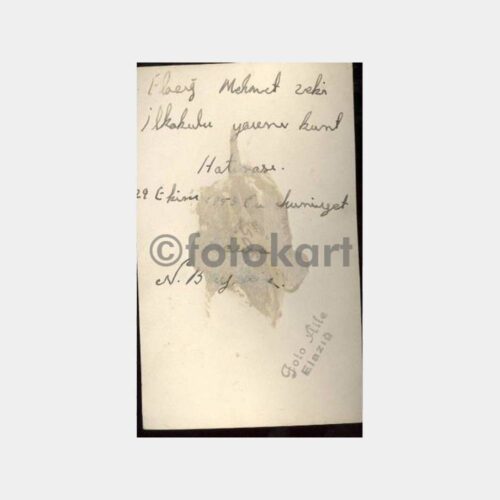 Elazığ Mehmet Zeki
İlkokulu yavru kurt
Hatırası.
29 Ekim 1953 Cu huriyet
©fotokart
N. B
Foto Aile
Elazığ